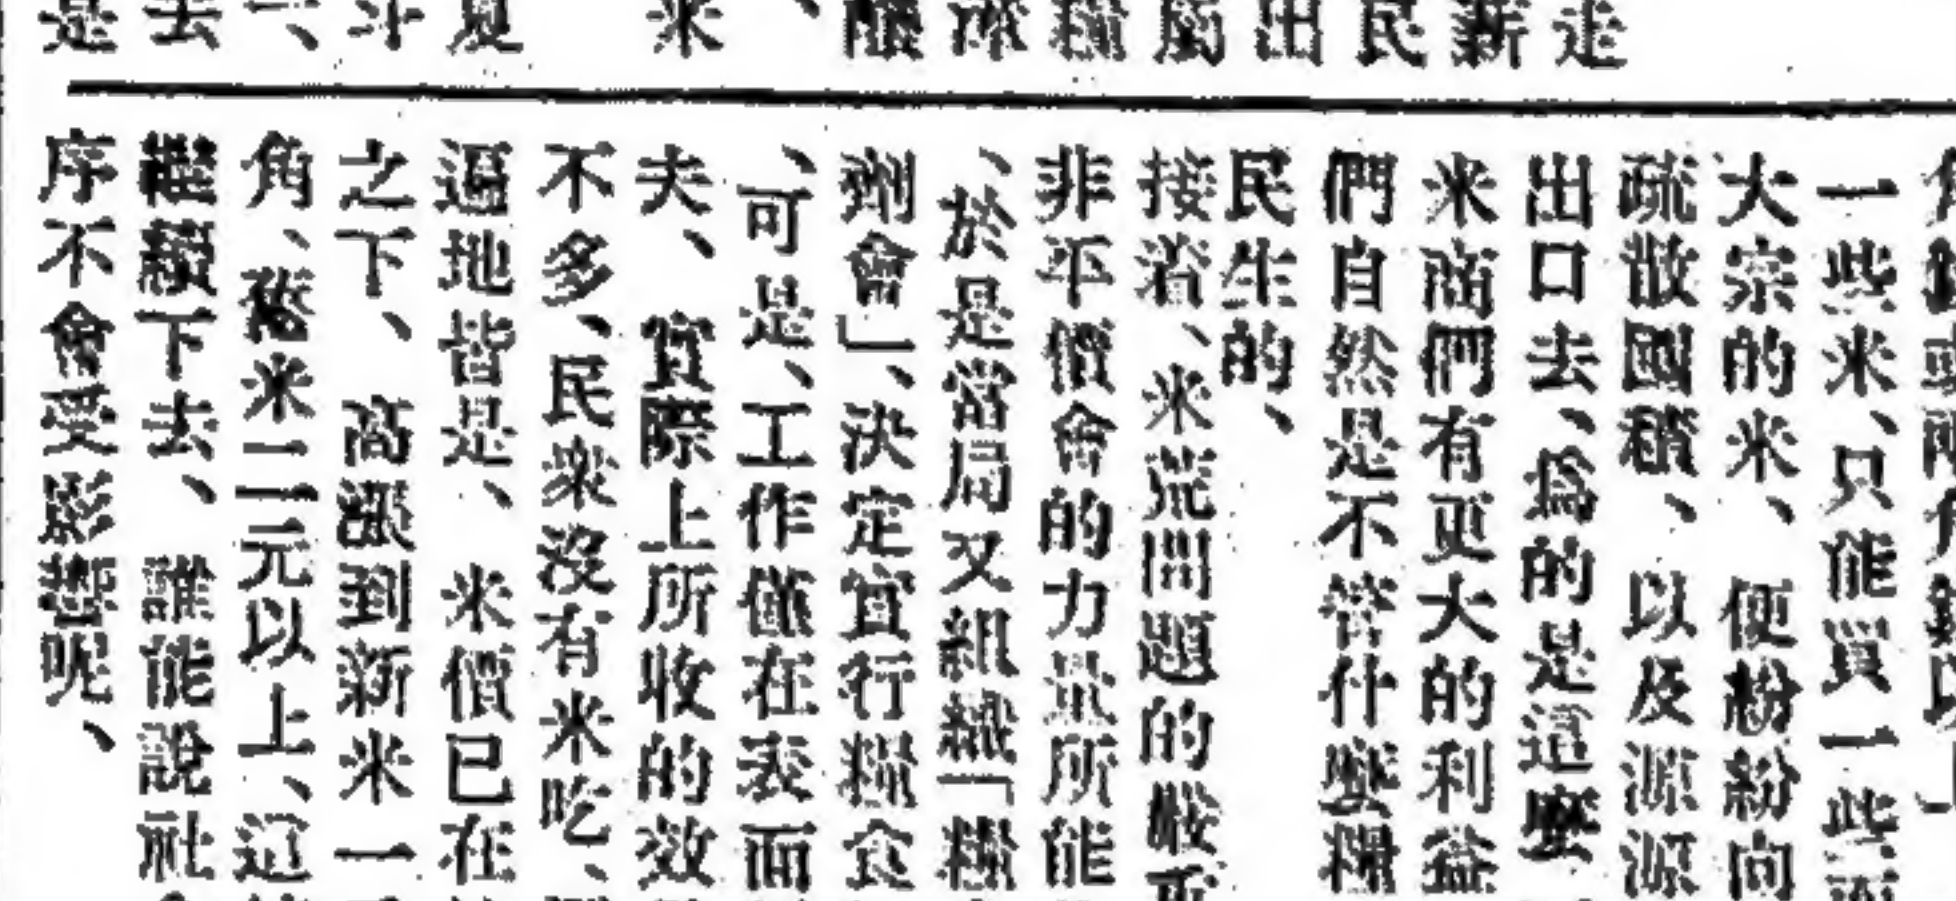 一些米、只能買一些
大宗的米、便紛紛向
疏散國積、以及源源
出口去、為的是這麼
米商們有更大的利益
們自然是不管什麼糧
民生的、
接濟、米荒問題的嚴重
非平價會的力量所能
、於是當局又組織「糧
劑會」、決定實行糧食
、可是、工作僅在表面
夫、實際上所收的效
不多、民衆沒有米吃、
遍地皆是、米價已在
之下、高漲到新米一
角、米二元以上、這
繼續下去、誰能說社
序不會受影響呢、